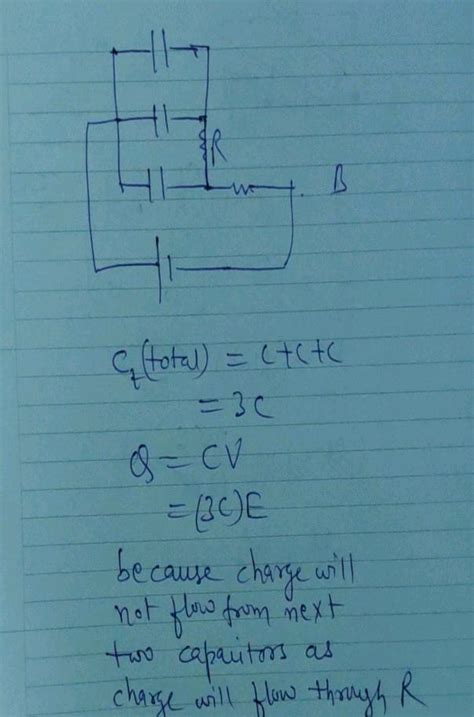 R
B
Cq(total) = C+C+C
= 3C
Q = CV
= (3C)E
because charge will
not flow from next
two capacitors as
charge will flow through R